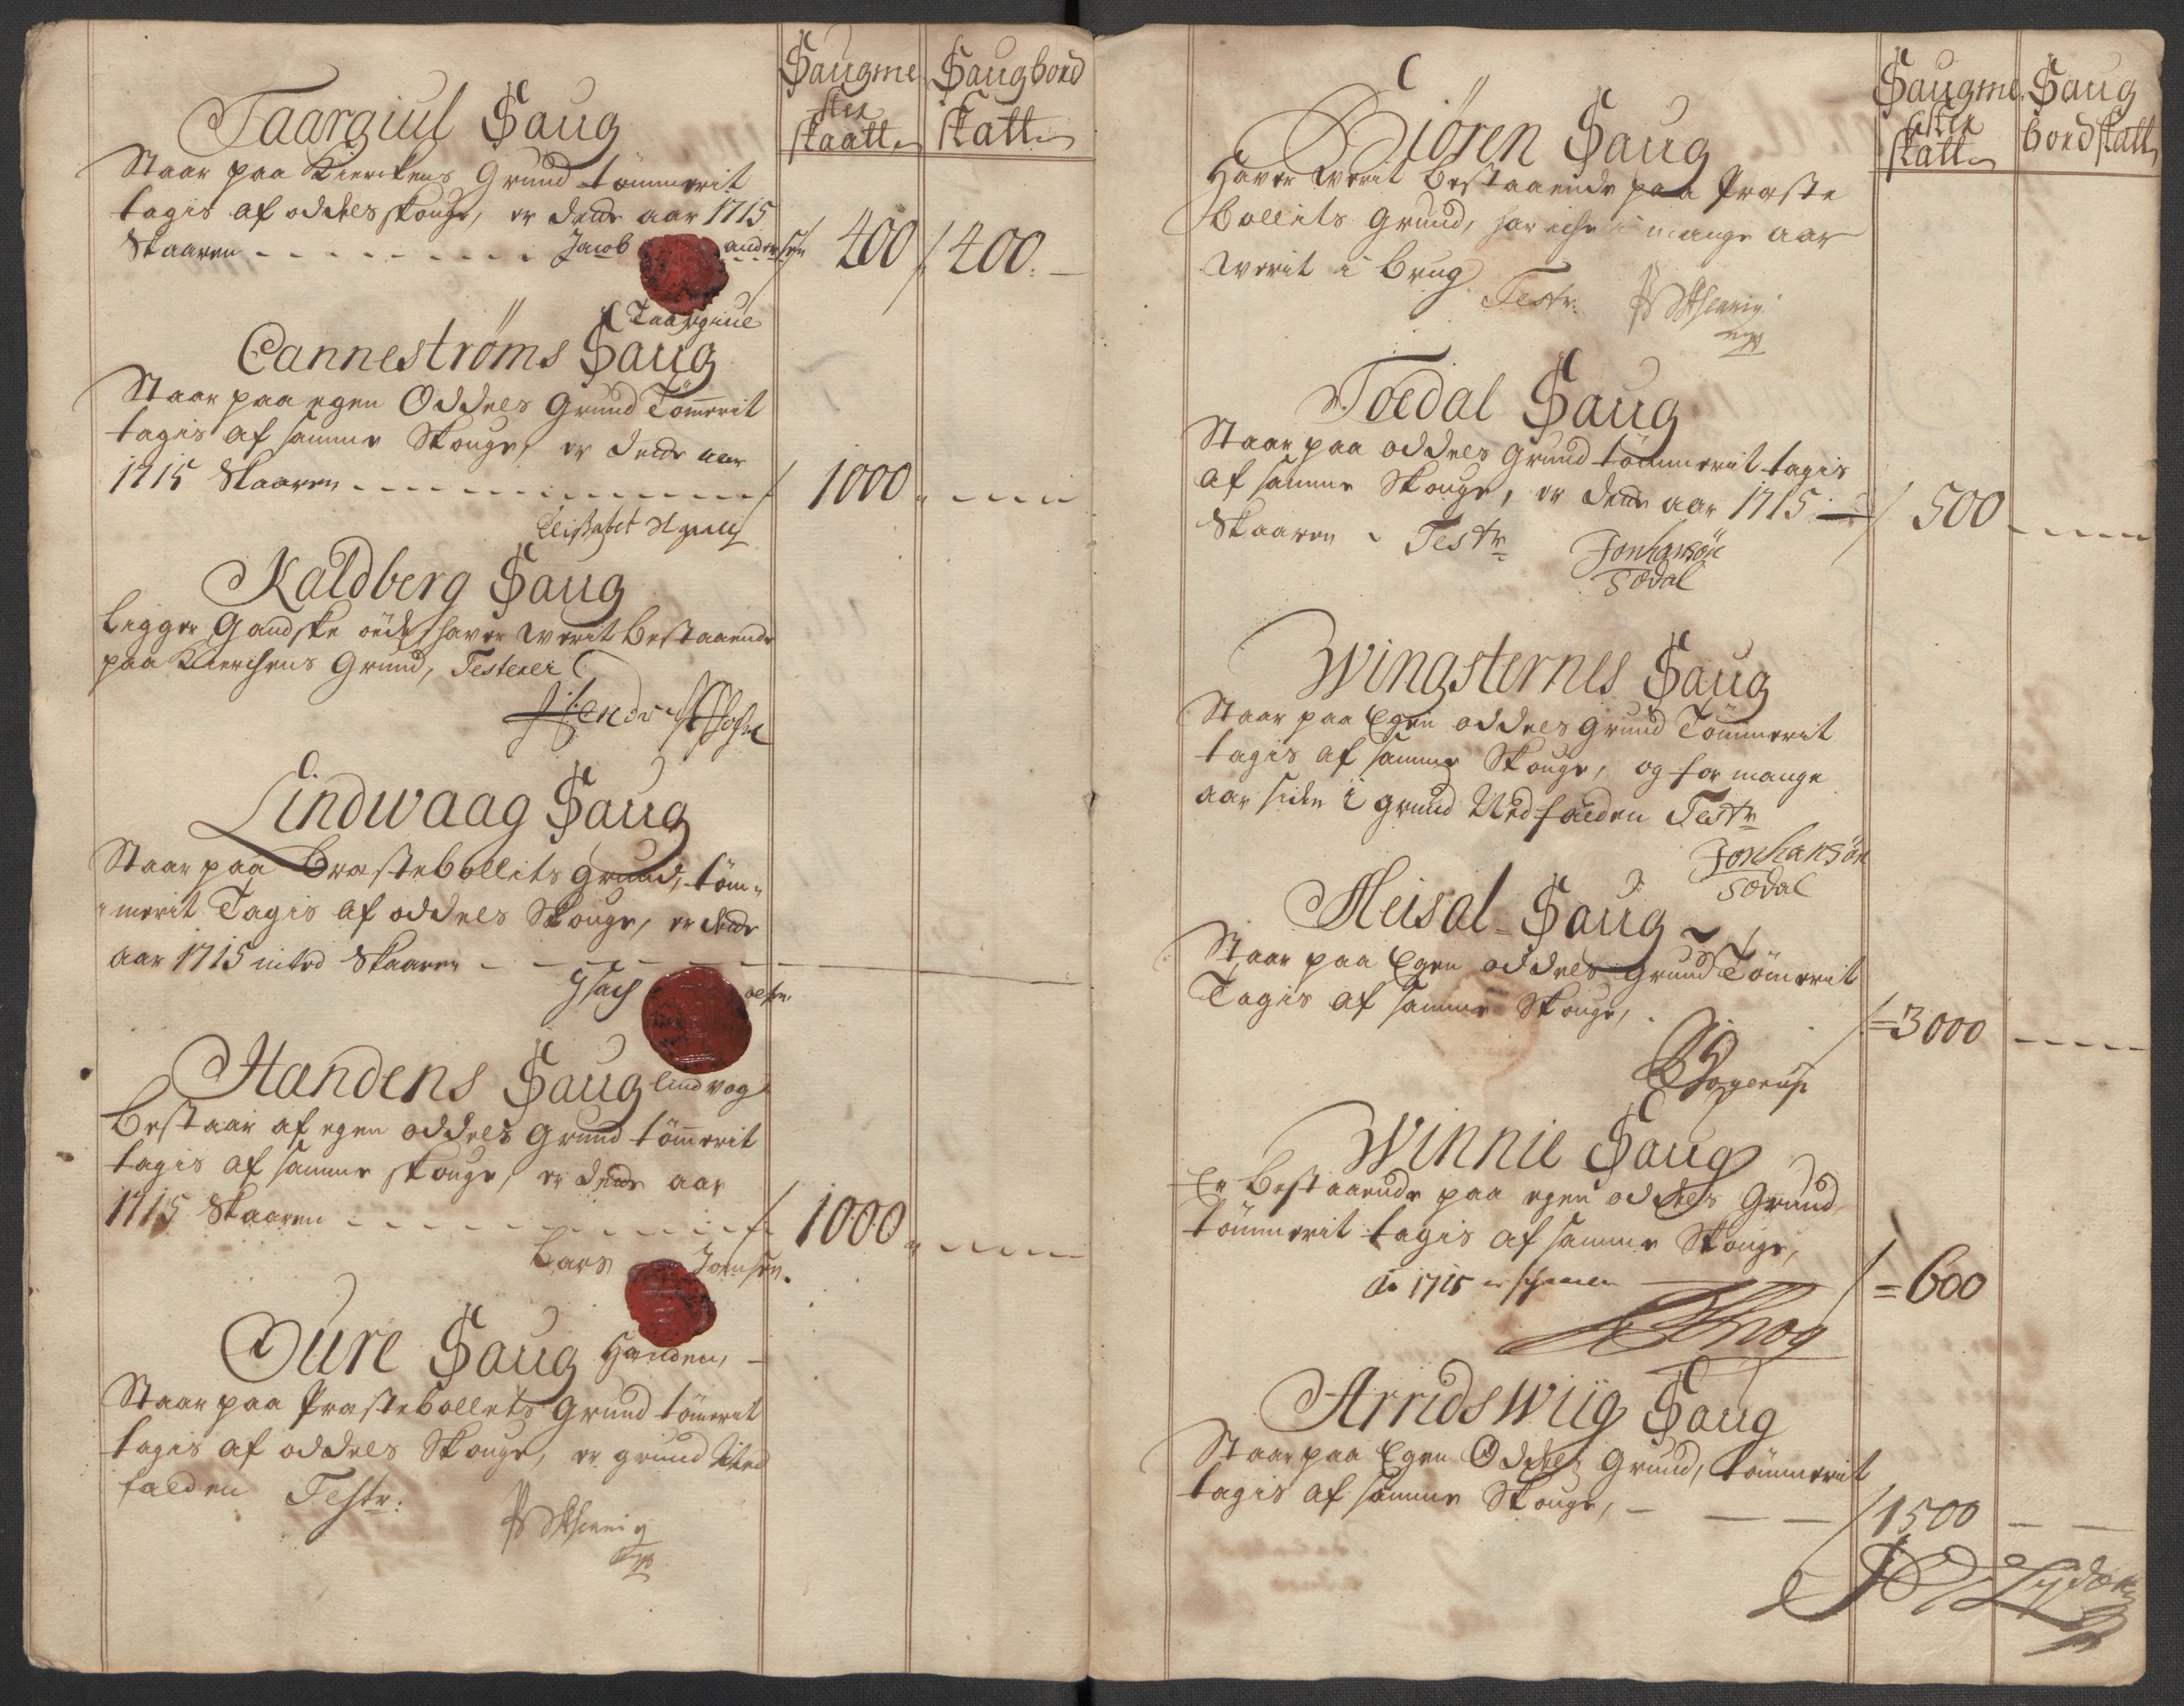 Saugme
ster
skaatt
Saugbord
skatt
Taargiul Saug
Staar paa Kierckens Grund tömmerit
tagis af oddels skouge, er dette aar 1715
Skaaren Jacob andersen 400 400
Taargiul
Canneströms Saug
Staar paa egen Oddels Grund Tömmerit
tagis af samme Skouge, er dette aar
1715 Skaaren 1000
Kaldberg Saug
Ligger Gandske öede haver werit bestaaende
paa Kierckens Grund, Testerer
Lindwaag Saug
Staar paa Præstebollits Grund, töm-
merit Tagis af oddels Skouge, er dette
aar 1715 inted Skaaren
Jsach olsen
lindvog
Handens Saug
Bestaar af egen oddels grund tömmerit
tagis af samme skouge, er dette aar
1715 Skaaren 1000
Lars Joensen
Handen
Oure Saug
Staar paa Præstebollets Grund tömerit
tagis af oddels Skouge, er grund Ned
falden Testr:
Saugme
ster
skatt
Saug
bord skatt
Biören Saug
Haver Werit bestaaende paa Præste
bollits Grund, har iche i mange aar
werit i brug Testr:
Toedal Saug
Staar paa oddels Grund tömmerit tagis
af samme Skouge, er dette aar 1715
Skaaren Testr 500
Jonhansön
Södal
Wingsternes Saug
Staar paa Egen oddels Grund Tömmerit
tagis af samme Skouge, og for mange
aar siden i grund Nedfalden Testr
Jonhansön
Södal
Meisal Saug
Staar paa Egen oddels Grund Tömerit
Tagis af samme Skouge, 3000
Winnie Saug
Er bestaaende paa egen oddels Grund
tömmerit tagis af samme Skouge,
Ao 1715 er schaaren 600
Arridswiig Saug
Staar paa Egen Oddels Grund, tömmerit
tagis af samme Skouge, 1500